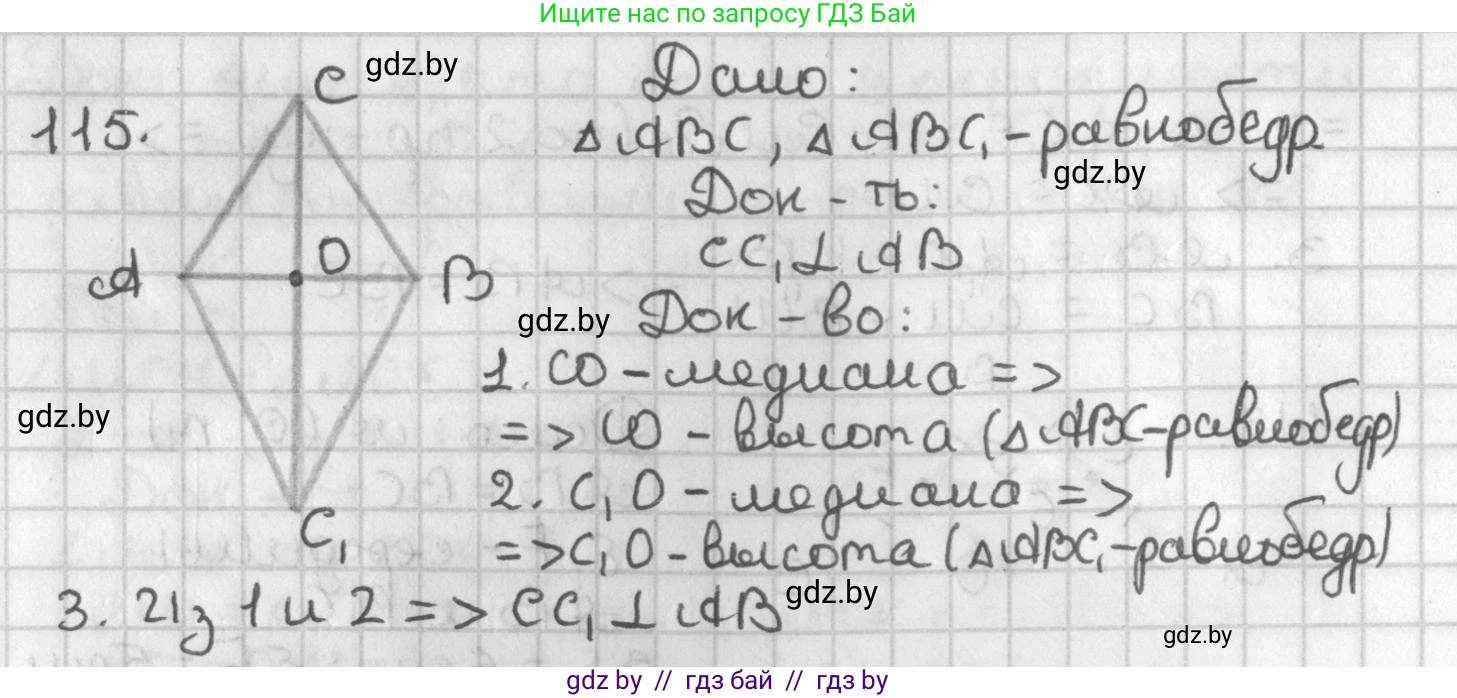 Ищите нас по запросу ГДЗ Бай
115.
C
gdz.by
Дано:
△ABC, △ABC₁ - равнобедр
gdz.by
Док - ть:
CC₁⊥AB
A
O
B
gdz.by
Док - во:
1. CO - медиана =>
gdz.by
=> CO - высота (△ABC - равнобедр)
2. C₁O - медиана =>
C₁
=> C₁O - высота (△ABC₁ - равнобедр)
3. Из 1 и 2 => CC₁⊥AB
gdz.by
gdz.by
gdz by // гдз бай // гдз by